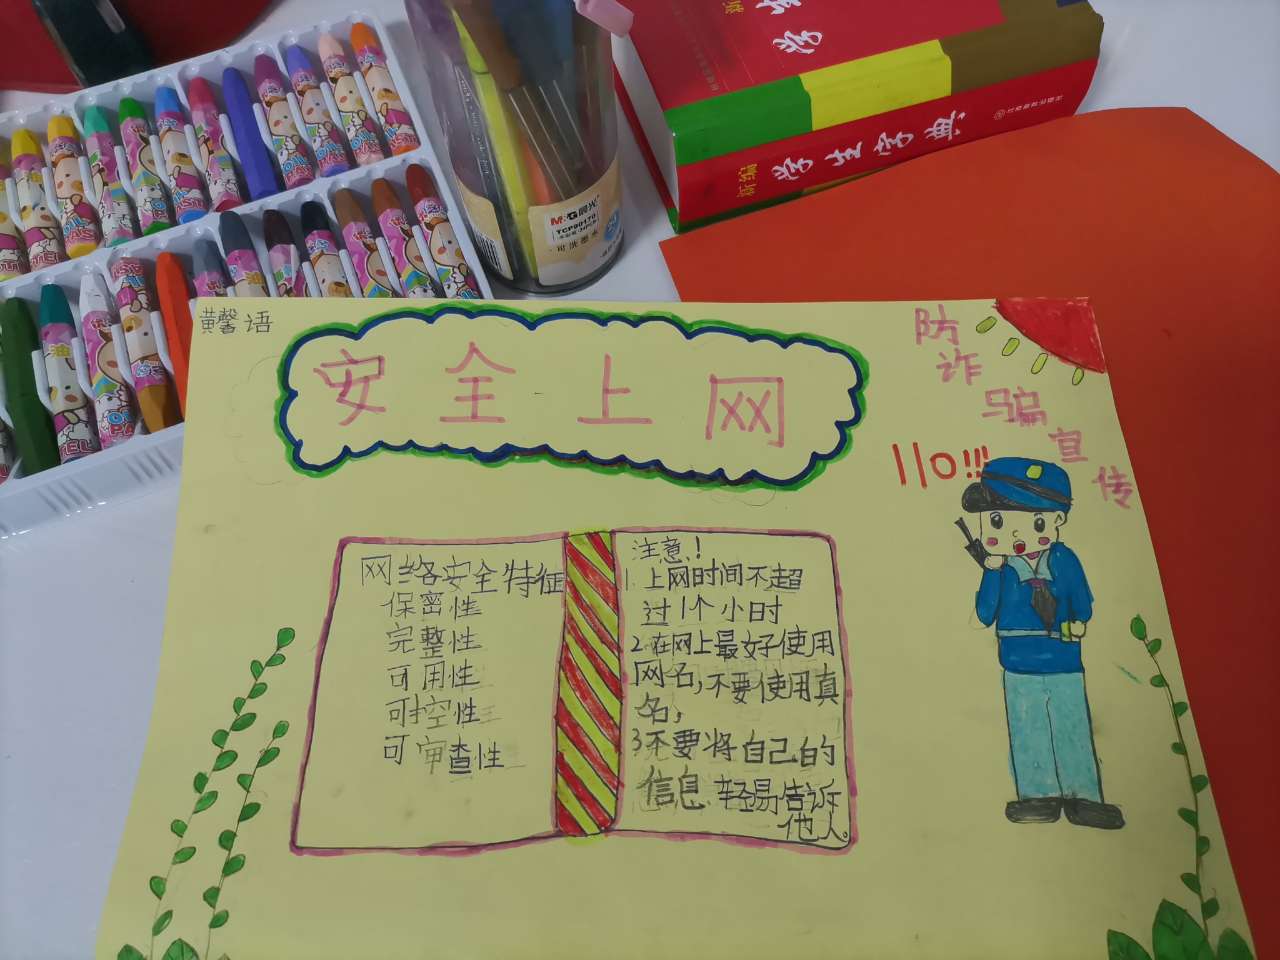 新编 学生字典
M&G 晨光
TCP90170
可洗墨水
黄馨语
安全上网
防诈骗宣传
110!!!
网络安全特征
保密性
完整性
可用性
可控性
可审查性
注意!
1.上网时间不超
过1个小时
2.在网上最好使用
网名,不要使用真
名,
3不要将自己的
信息轻易告诉
他人。